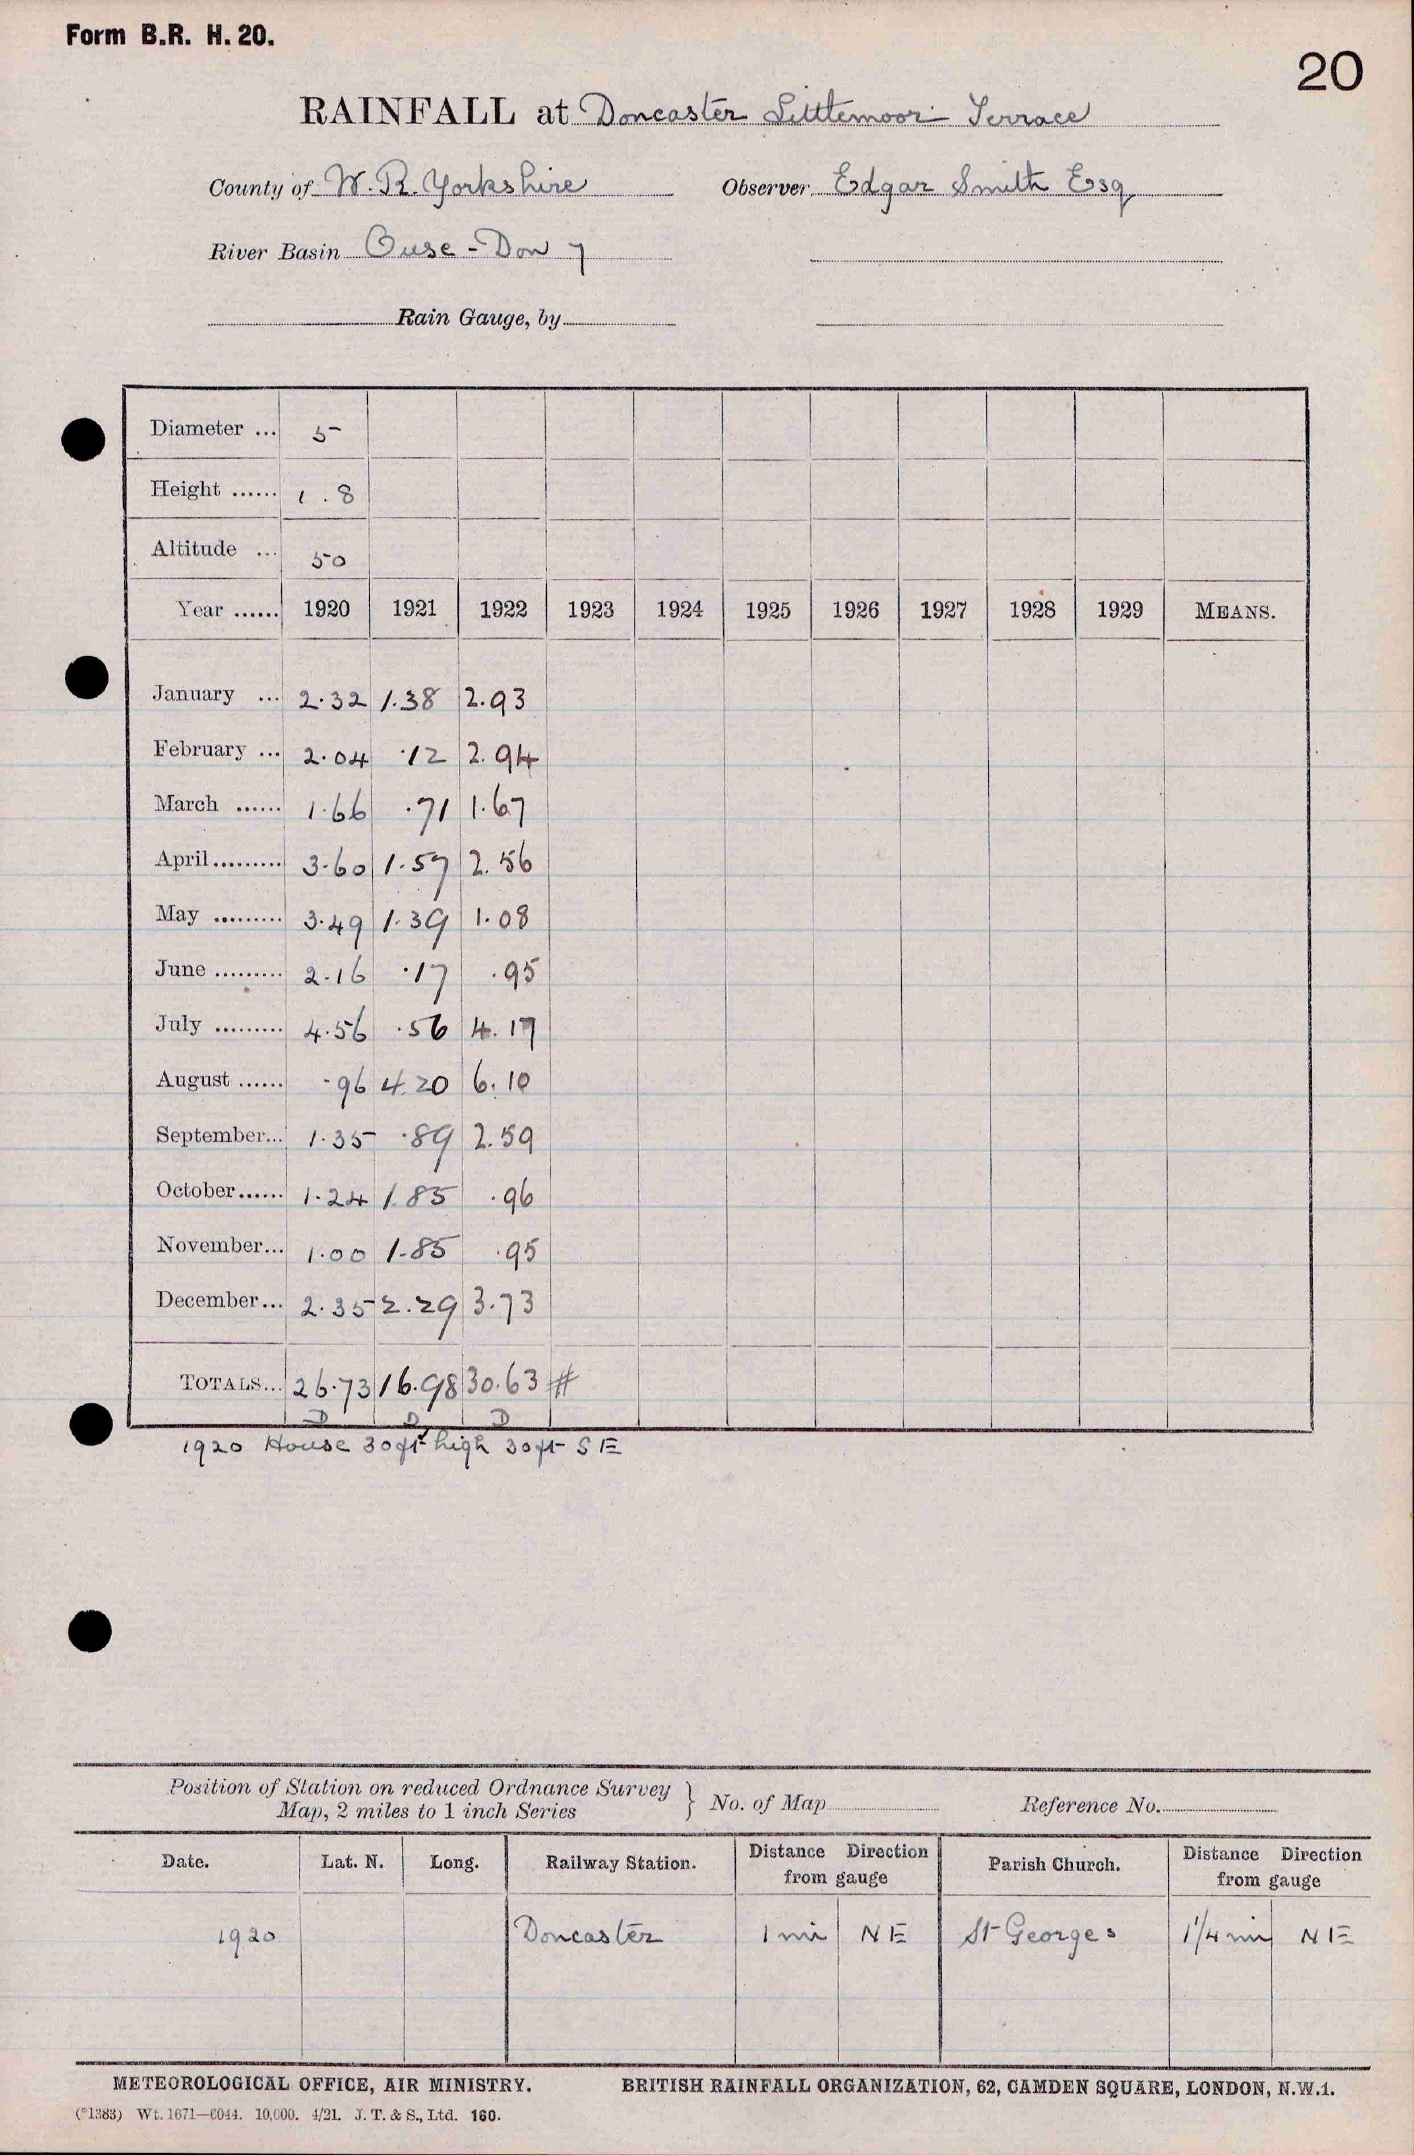 Form B.R. H. 20.
20
RAINFALL at Doncaster Littlemoor Terrace
County of W. R. Yorkshire Observer Edgar Smith Esq
River Basin Ouse - Don 7
Rain Gauge, by
Diameter ... 5
Height ...... 1.8
Altitude ... 50
Year ...... 1920 1921 1922 1923 1924 1925 1926 1927 1928 1929 MEANS.
January ... 2.32 1.38 2.93
February ... 2.04 .12 2.94
March ...... 1.66 .71 1.67
April......... 3.60 1.57 2.56
May ......... 3.49 1.39 1.08
June ......... 2.16 .17 .95
July ......... 4.56 .56 4.17
August ...... .96 4.20 6.10
September... 1.35 .89 2.59
October...... 1.24 1.85 .96
November... 1.00 1.85 .95
December... 2.35 2.29 3.73
TOTALS... 26.73 16.98 30.63 #
D D D
1920 House 30ft high 30ft SE
Position of Station on reduced Ordnance Survey
Map, 2 miles to 1 inch Series } No. of Map Reference No.
Date. Lat. N. Long. Railway Station. Distance Direction from gauge Parish Church. Distance Direction from gauge
1920 Doncaster 1 mi NE St Georges 1 1/4 mi NE
METEOROLOGICAL OFFICE, AIR MINISTRY. BRITISH RAINFALL ORGANIZATION, 62, CAMDEN SQUARE, LONDON, N.W.1.
(*1383) Wt. 1671—6044. 10,000. 4/21. J. T. & S., Ltd. 160.